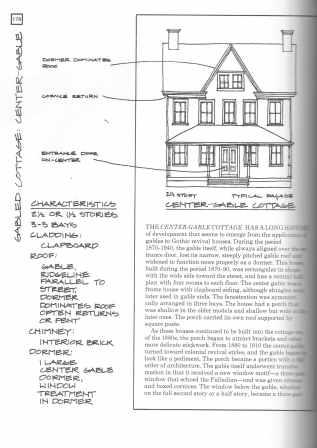 178
GABLED COTTAGE: CENTER-GABLE
DORMER DOMINATES
ROOF
CORNICE RETURN
ENTRANCE DOOR
ON-CENTER
2½ STORY TYPICAL FACADE
CENTER-GABLE COTTAGE
CHARACTERISTICS
2½ OR 1½ STORIES
3-5 BAYS
CLADDING:
CLAPBOARD
ROOF:
GABLE,
RIDGELINE
PARALLEL TO
STREET,
DORMER
DOMINATES ROOF
OFTEN RETURNS
OR PENT
CHIMNEY:
INTERIOR BRICK
DORMER:
1 LARGE
CENTER GABLE
DORMER,
WINDOW
TREATMENT
IN DORMER
THE CENTER-GABLE COTTAGE HAS A LONG
of development that seems to emerge from the application of
gables to Gothic revival houses. During the period
1870–1940, the gable itself, while always aligned over the
trance door, lost its narrow, steeply pitched gable roof and
widened to function more properly as a dormer. This house,
built during the period 1870–90, was rectangular in shape
with the wide side toward the street, and had a central hall
plan with four rooms to each floor. The center gable was a
frame house with clapboard siding, although shingles were
later used in gable ends. The fenestration was symmetri-
cally arranged in three bays. The house had a porch that
was shallow in the older models and shallow but wide in
later ones. The porch carried its own roof supported by
square posts.
As these houses continued to be built into the
of the 1880s, the porch began to attract brackets and other
more delicate stickwork. From 1880 to 1910 the center gable
turned toward colonial revival styles, and the gable began to
look like a pediment. The porch became a portico with a
order of architecture. The gable itself underwent transfor-
mation in that it received a new window motif—a three-part
window that echoed the Palladian—and was given returns
and boxed cornices. The window below the gable, whether
on the full second story or a half story, became a three-part